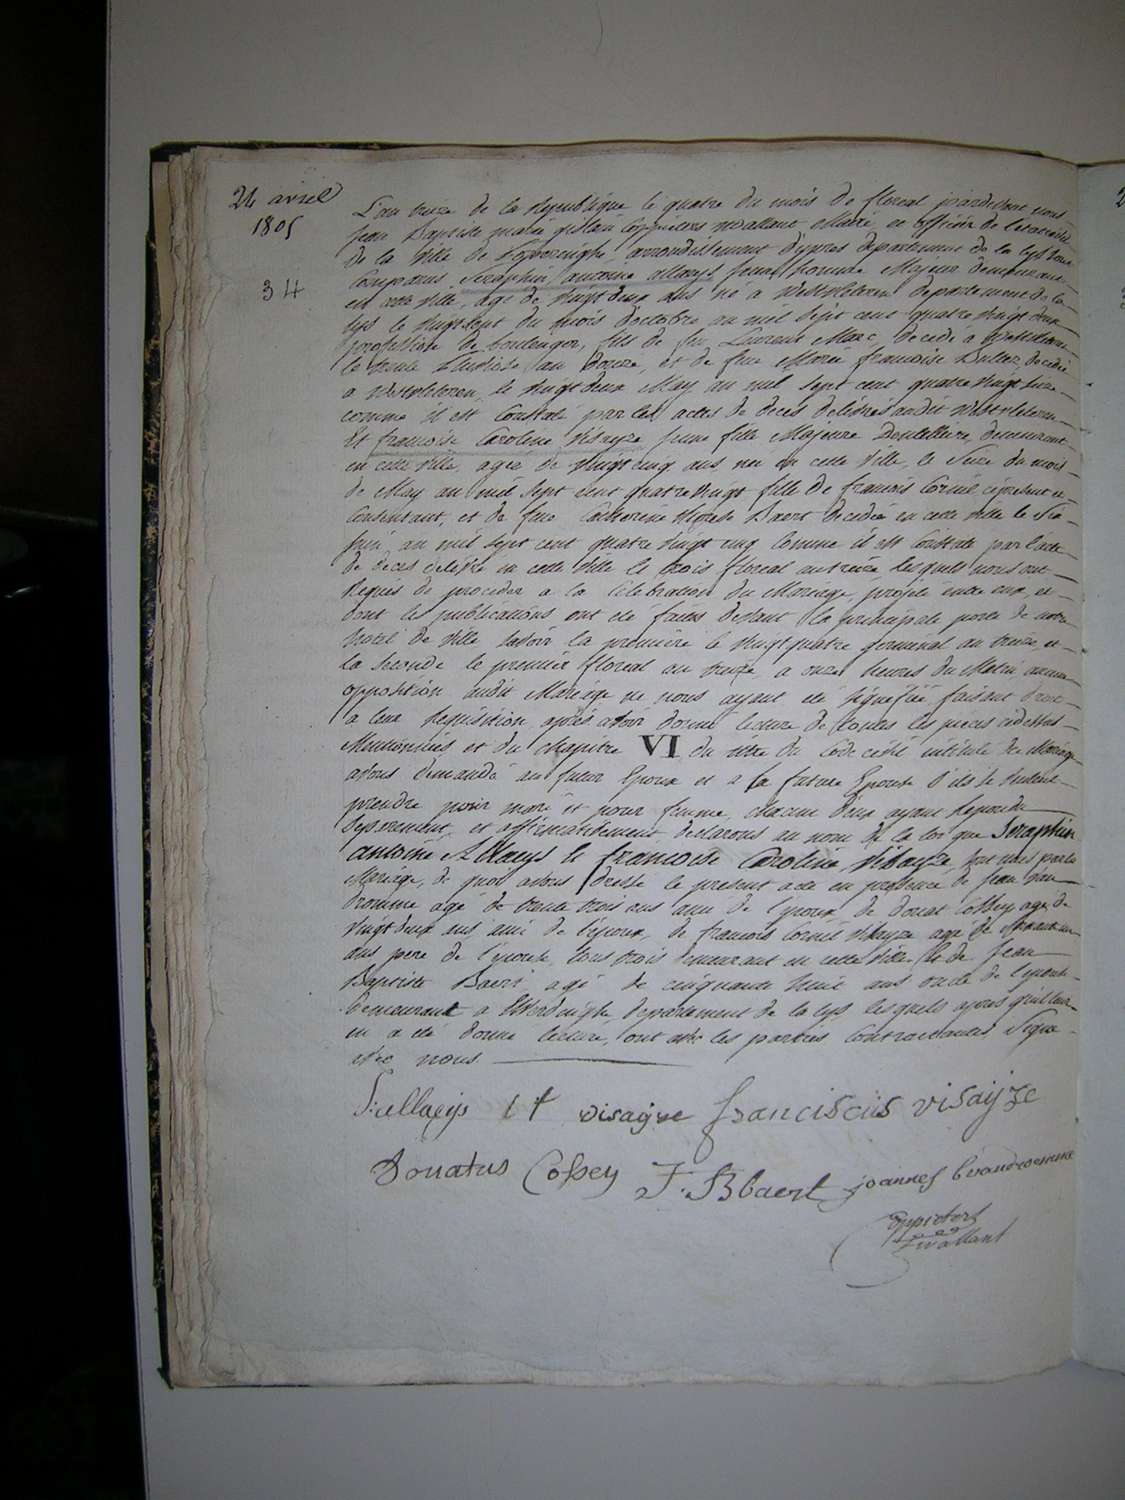 24 avril
1805
34
L'an treize de la République le quatre du mois de floreal pardevant nous
Jean Baptiste marie gislain Coppieters Wallant Maire et officier de l'etat civil
de la Ville de Poperinghe, arrondissement d'ypres departement de la Lys sont
Comparus Seraphin antoine allaeys jeune homme Majeur demeurant
en cette ville, agé de vingt deux ans né a Westvleteren departement de la
Lys le vingt du mois d'octobre an mil sept cent quatre vingt deux
profession de boulenger, fils de feu Laurent Marc, decedé a Westvleteren
le Nivose an douze, et de feue Marie francoise decedée
a Westvleteren, le vingt deux May an mil sept cent quatre vingt
comme il est Constaté par les actes de deces delivrés audit Westvleteren
Et francoise Caroline Visayze jeune fille Majeure Dentelliere, demeurant
en cette Ville, agée de vingt cinq ans née en cette Ville, le Seize du mois
de May an mil sept cent quatre vingt fille de francois Cornil cipresent et
Consentant, et de feue Catherine Baert decedée en cette ville le Six
juin an mil sept cent quatre vingt cinq Comme il est Constaté par l'acte
de deces delivré en cette Ville le trois floreal an treize lesquels nous ont
Requis de proceder a la Celebration du Mariage projeté entre eux, et
dont les publications ont été faites devant la principale porte de notre
hotel de Ville savoir la premiere le vingt quatre germinal an treize et
la seconde le premier floreal an treize a onze heures du Matin aucune
opposition audit Mariage ne nous ayant été signifiée faisant droit
a leur Requisition, après avoir donné lecture de toutes les pieces cidessus
Mentionnées et du chapitre VI du titre du Code civil intitulé du Mariage
avons demandé au futur Epoux et a la future Epouse s'ils se veulent
prendre pour mari et pour femme, chacun d'eux ayant repondu
separement et affirmativement declarons au nom de la loi que Seraphin
antoine Allaeys et francoise Caroline Visayze sont unis par le
Mariage, de quoi avons dressé le present acte en presence de Jean van
Dromme agé de trente trois ans ami de l'epoux, de donat Cossey agé de
vingt deux ans ami de l'epoux, de francois Cornil Visayze agé de
ans pere de l'epouse, tous trois demeurant en cette Ville et de Jean
Baptiste Baert agé de cinquante huit ans oncle de l'epouse
demeurant a Elverdinghe departement de la Lys lesquels apres qu'il leur
en a été donné lecture, ont avec les parties Contractantes Signé
avec nous
S: allaeys f visayze franciscus visayze
Donatus Cossey J. Bbaert joannes vandromme
Coppieters
Wallant